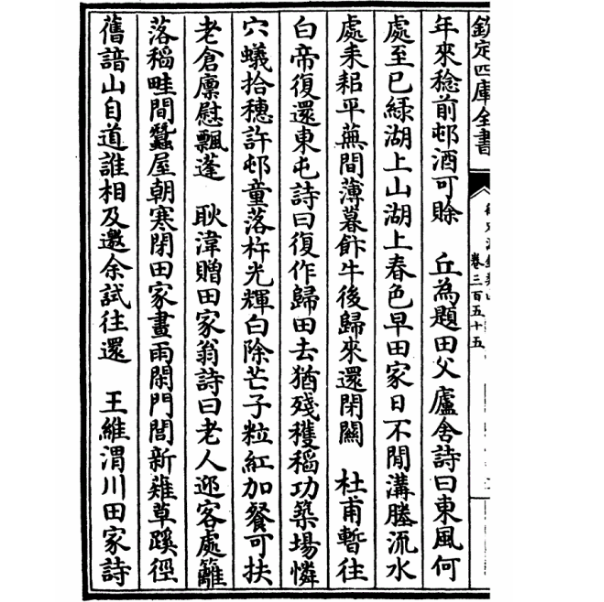 欽定四庫全書
卷三百五十五
年來稔前邨酒可賒　丘為題田父廬舍詩曰東風何
處至已緑湖上山湖上春色早田家日不閒溝塍流水
處耒耜平蕪間薄暮飰牛後歸來還閉關　杜甫暫往
白帝復還東屯詩曰復作歸田去猶殘穫稻功築場憐
穴蟻拾穗許邨童落杵光輝白除芒子粒紅加餐可扶
老倉廪慰飄蓬　耿湋贈田家翁詩曰老人迎客處籬
落稻畦間蠶屋朝寒閉田家晝雨閑門閭新薙草蹊徑
舊諳山自道誰相及邀余試往還　王維渭川田家詩